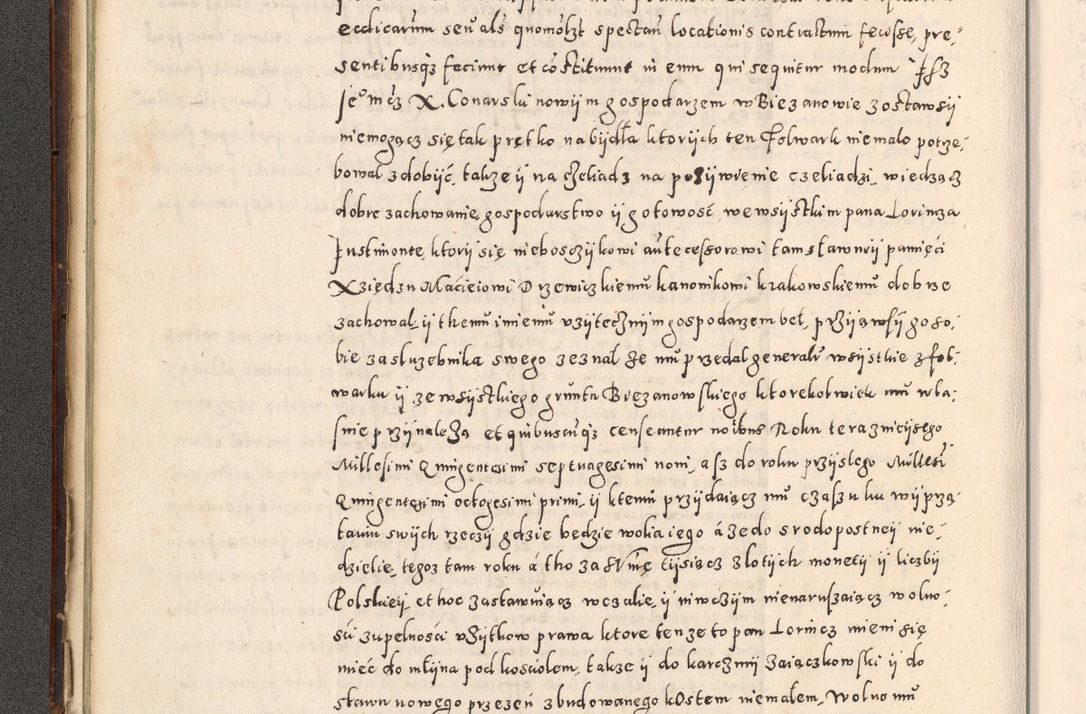 ecclicarum seu als quomołzt spectan locationis contractum fecisse, pre,
sentibusqz faciunt et cōstituunt in eum qui sequitur modum Jſz
Je° mcz X. Conarski nowijm gospodarzem w Biezanowie zostawsij
niemogącz się tak prętko na bijdła ktorijch ten Folwark niemalo potrze,
bowal zdobijć, takze ij na czeliadz na pożijwienie czeliadzi, wiedzącz
dobre zachowanie, gospodarstwo ij gotowosć we wsijstkim pana Lorincza
Justimonte, ktorij się nieboszczijkowi antecessorowi tam sławneij pamięci
Xziędzu Maciejowi Drzewiczkiemu kanonikowi krakowskiemu dobrze
zachował, ij themu imieniu vzijtecznijm gospodarzem beł, przijąwsij go so,
bie za sluzebnika swego zeznal ze mu przedal generalr wsijstkie z fol,
warku ij ze wsijstkiego gruntu Biezanowskiego ktorekolwiek mu wła,
snie przijnalezą et quibuscuqz censeantur noibus Roku terazniejsego
Millesimi Quingentesimi septuagesimi noni, asz do roku przijslego Millesi
Quingentesimi octogesimi primi, ij ktemu przijdaiącz mu czaszu ku wijprzą,
taniu swijch rzeczij gdzie bedzie wolia iego aze do srodopostneij nie,
dzielie, tegoz tam roku á tho za summę tijsiącz zlotijch monetij ij liczbij
Polskieij, et hoc zastawuiącz w czalie, ij niwczijm nienaruszaiącz wolno,
sci zupelnosci vzijtkow prawa ktore ten ze to pan Lorincz mieni się
mieć do młijna pod kosciołem, takze ij do karczmij zaiączkowski ij do
stawu nowego przezeń zbudowanego kosztem niemalem, Wolno mu